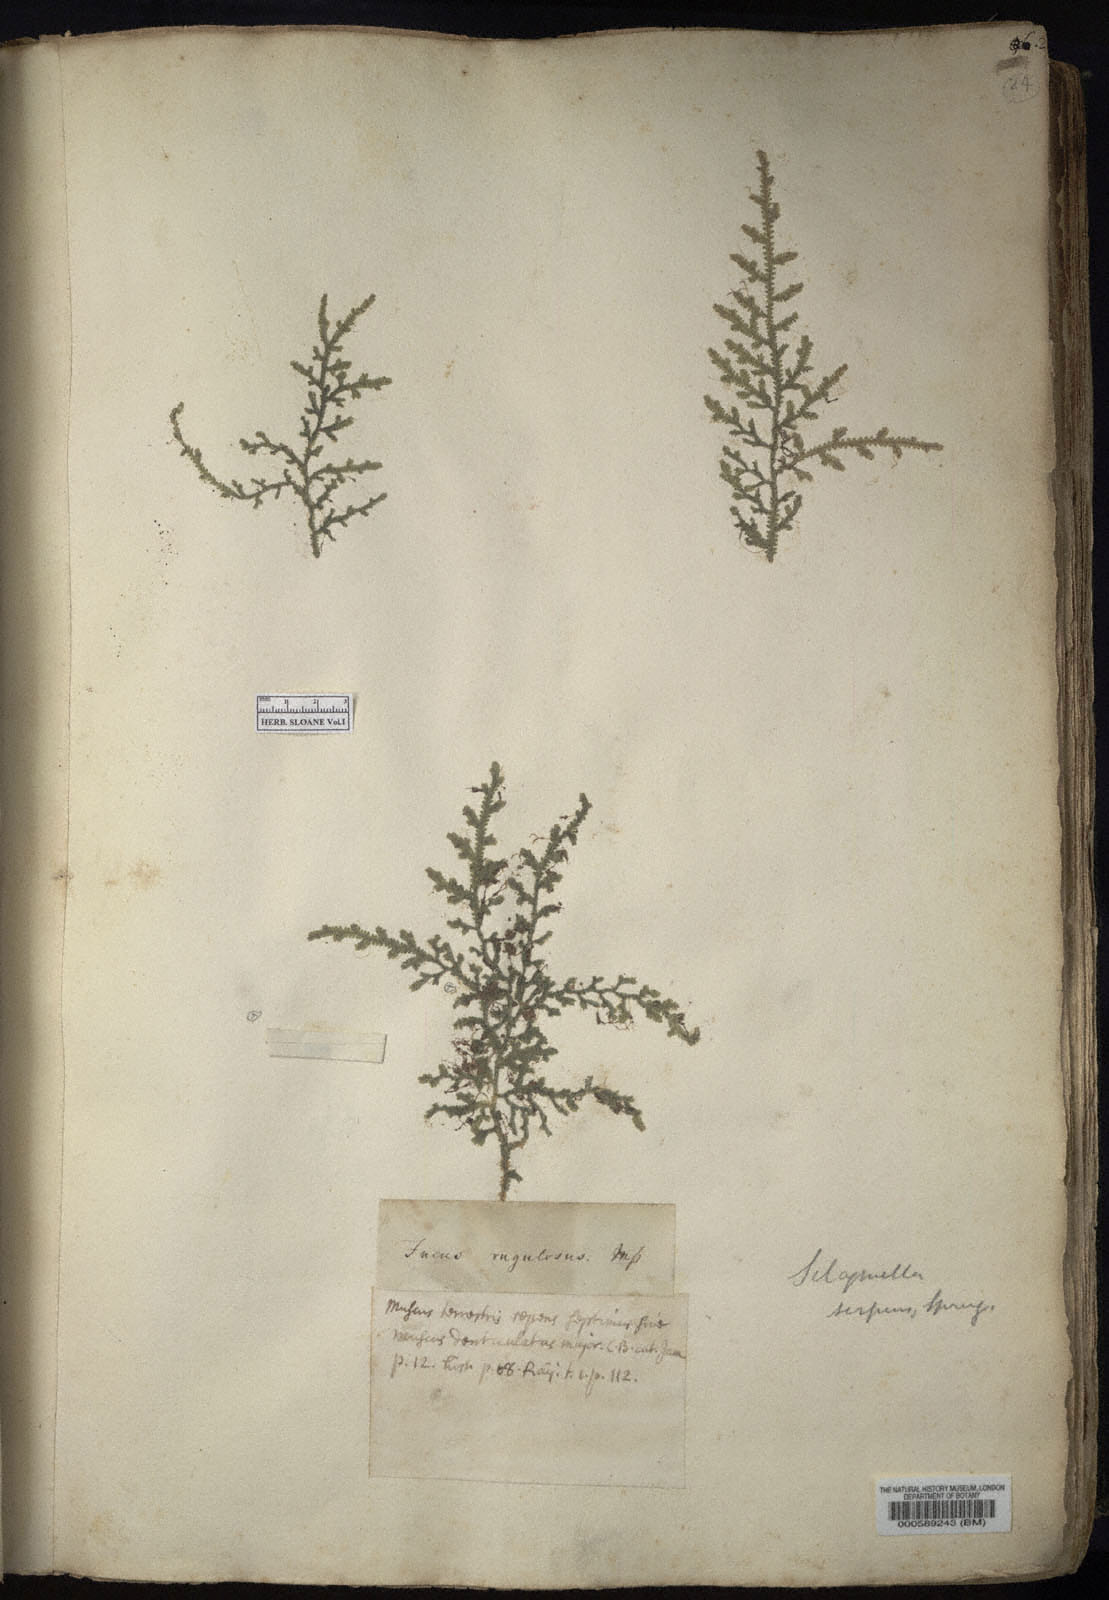 24
mm 1 2 3
HERB. SLOANE Vol.1
Fucus rugulosus. Msp
Muscus terrestris repens septimus sive
muscus denticulatus major. C.B. cat. Jam
p. 12. hist. p. 68. Raij. t. 1. p. 112.
Selaginella
serpens, Spring.
THE NATURAL HISTORY MUSEUM, LONDON
DEPARTMENT OF BOTANY
000589243 (BM)